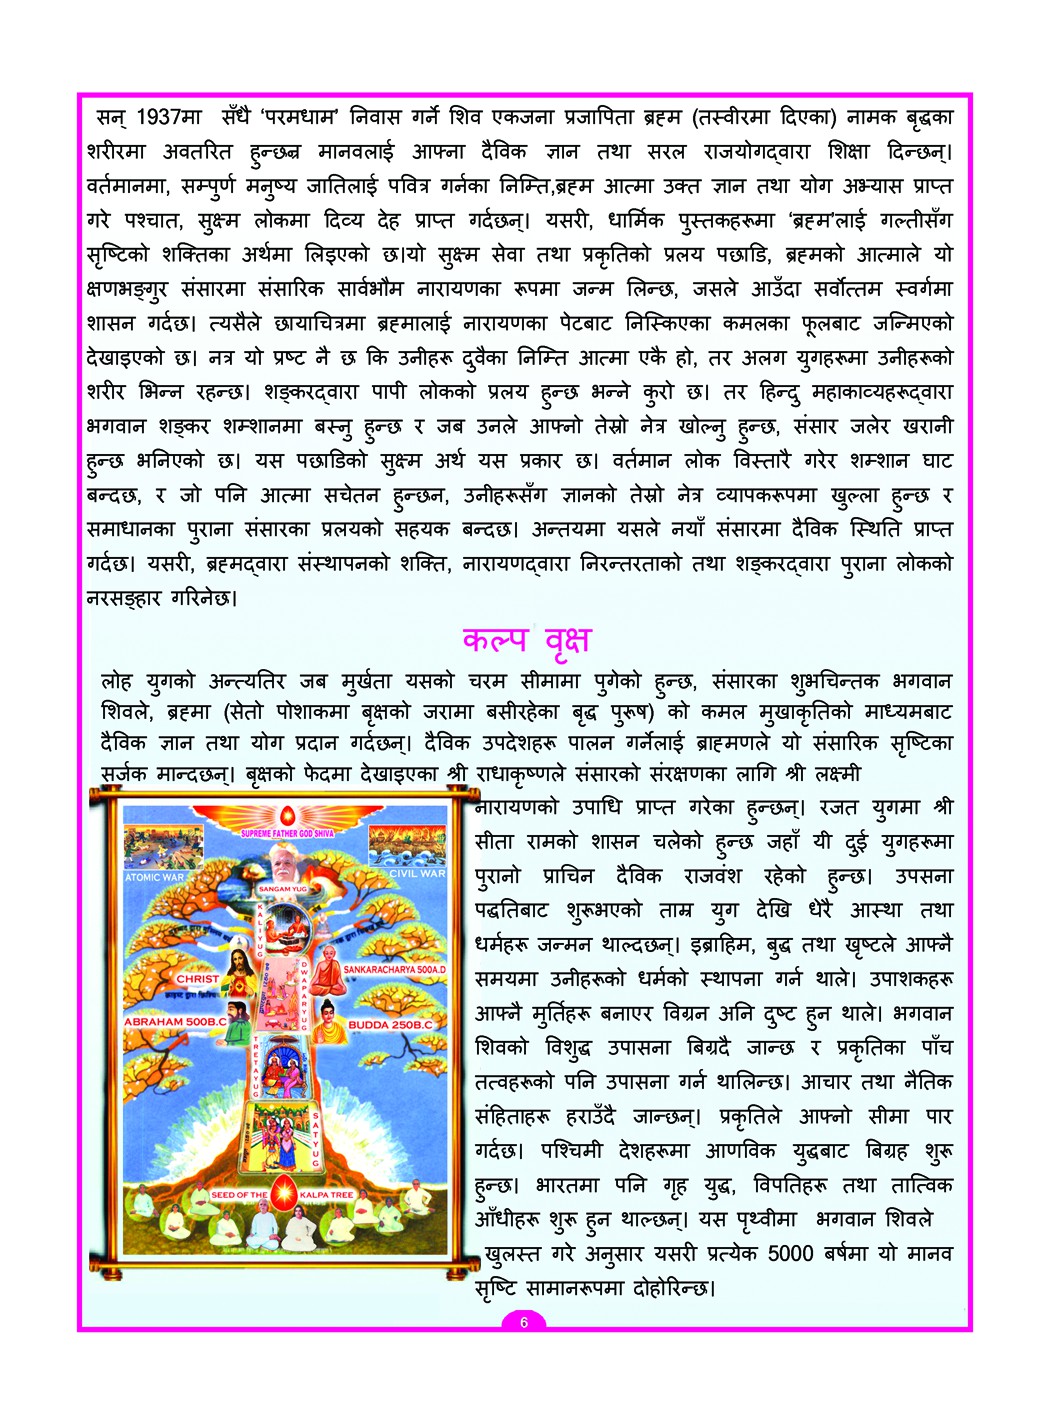 सन् 1937मा सँधै 'परमधाम' निवास गर्ने शिव एकजना प्रजापिता ब्रह्म (तस्वीरमा दिएका) नामक बृद्धका
शरीरमा अवतरित हुन्छन्र मानवलाई आफ्ना दैविक ज्ञान तथा सरल राजयोगद्वारा शिक्षा दिन्छन्।
वर्तमानमा, सम्पुर्ण मनुष्य जातिलाई पवित्र गर्नका निम्ति,ब्रह्म आत्मा उक्त ज्ञान तथा योग अभ्यास प्राप्त
गरे पश्चात, सुक्ष्म लोकमा दिव्य देह प्राप्त गर्दछन्। यसरी, धार्मिक पुस्तकहरूमा 'ब्रह्म'लाई गल्तीसँग
सृष्टिको शक्तिका अर्थमा लिइएको छ।यो सुक्ष्म सेवा तथा प्रकृतिको प्रलय पछाडि, ब्रह्मको आत्माले यो
क्षणभङ्गुर संसारमा संसारिक सार्वभौम नारायणका रूपमा जन्म लिन्छ, जसले आउँदा सर्वोत्तम स्वर्गमा
शासन गर्दछ। त्यसैले छायाचित्रमा ब्रह्मालाई नारायणका पेटबाट निस्किएका कमलका फूलबाट जन्मिएको
देखाइएको छ। नत्र यो प्रष्ट नै छ कि उनीहरू दुवैका निम्ति आत्मा एकै हो, तर अलग युगहरूमा उनीहरूको
शरीर भिन्न रहन्छ। शङ्करद्वारा पापी लोकको प्रलय हुन्छ भन्ने कुरो छ। तर हिन्दु महाकाव्यहरूद्वारा
भगवान शङ्कर शम्शानमा बस्नु हुन्छ र जब उनले आफ्नो तेस्रो नेत्र खोल्नु हुन्छ, संसार जलेर खरानी
हुन्छ भनिएको छ। यस पछाडिको सुक्ष्म अर्थ यस प्रकार छ। वर्तमान लोक विस्तारै गरेर शम्शान घाट
बन्दछ, र जो पनि आत्मा सचेतन हुन्छन, उनीहरूसँग ज्ञानको तेस्रो नेत्र व्यापकरूपमा खुल्ला हुन्छ र
समाधानका पुराना संसारका प्रलयको सहयक बन्दछ। अन्तयमा यसले नयाँ संसारमा दैविक स्थिति प्राप्त
गर्दछ। यसरी, ब्रह्मद्वारा संस्थापनको शक्ति, नारायणद्वारा निरन्तरताको तथा शङ्करद्वारा पुराना लोकको
नरसङ्हार गरिनेछ।
कल्प वृक्ष
लोह युगको अन्त्यतिर जब मुर्खता यसको चरम सीमामा पुगेको हुन्छ, संसारका शुभचिन्तक भगवान
शिवले, ब्रह्मा (सेतो पोशाकमा बृक्षको जरामा बसीरहेका बृद्ध पुरूष) को कमल मुखाकृतिको माध्यमबाट
दैविक ज्ञान तथा योग प्रदान गर्दछन्। दैविक उपदेशहरू पालन गर्नेलाई ब्राह्मणले यो संसारिक सृष्टिका
सर्जक मान्दछन्। बृक्षको फेदमा देखाइएका श्री राधाकृष्णले संसारको संरक्षणका लागि श्री लक्ष्मी
नारायणको उपाधि प्राप्त गरेका हुन्छन्। रजत युगमा श्री
सीता रामको शासन चलेको हुन्छ जहाँ यी दुई युगहरूमा
पुरानो प्राचिन दैविक राजवंश रहेको हुन्छ। उपसना
पद्धतिबाट शुरूभएको ताम्र युग देखि धेरै आस्था तथा
धर्महरू जन्मन थाल्दछन्। इब्राहिम, बुद्ध तथा खृष्टले आफ्नै
समयमा उनीहरूको धर्मको स्थापना गर्न थाले। उपाशकहरू
आफ्नै मुर्तिहरू बनाएर विग्रन अनि दुष्ट हुन थाले। भगवान
शिवको विशुद्ध उपासना बिग्रदै जान्छ र प्रकृतिका पाँच
तत्वहरूको पनि उपासना गर्न थालिन्छ। आचार तथा नैतिक
संहिताहरू हराउँदै जान्छन्। प्रकृतिले आफ्नो सीमा पार
गर्दछ। पश्चिमी देशहरूमा आणविक युद्धबाट बिग्रह शुरू
हुन्छ। भारतमा पनि गृह युद्ध, विपतिहरू तथा तात्विक
आँधीहरू शुरू हुन थाल्छन्। यस पृथ्वीमा भगवान शिवले
खुलस्त गरे अनुसार यसरी प्रत्येक 5000 बर्षमा यो मानव
सृष्टि सामानरूपमा दोहोरिन्छ।
SUPREME FATHER GOD SHIVA
ATOMIC WAR
CIVIL WAR
SANGAM YUG
KALIYUG
CHRIST
SANKARACHARYA 500A.D
DWAPARYUG
ABRAHAM 500B.C
BUDDA 250B.C
TRETAYUG
SATYUG
SEED OF THE KALPA TREE
6